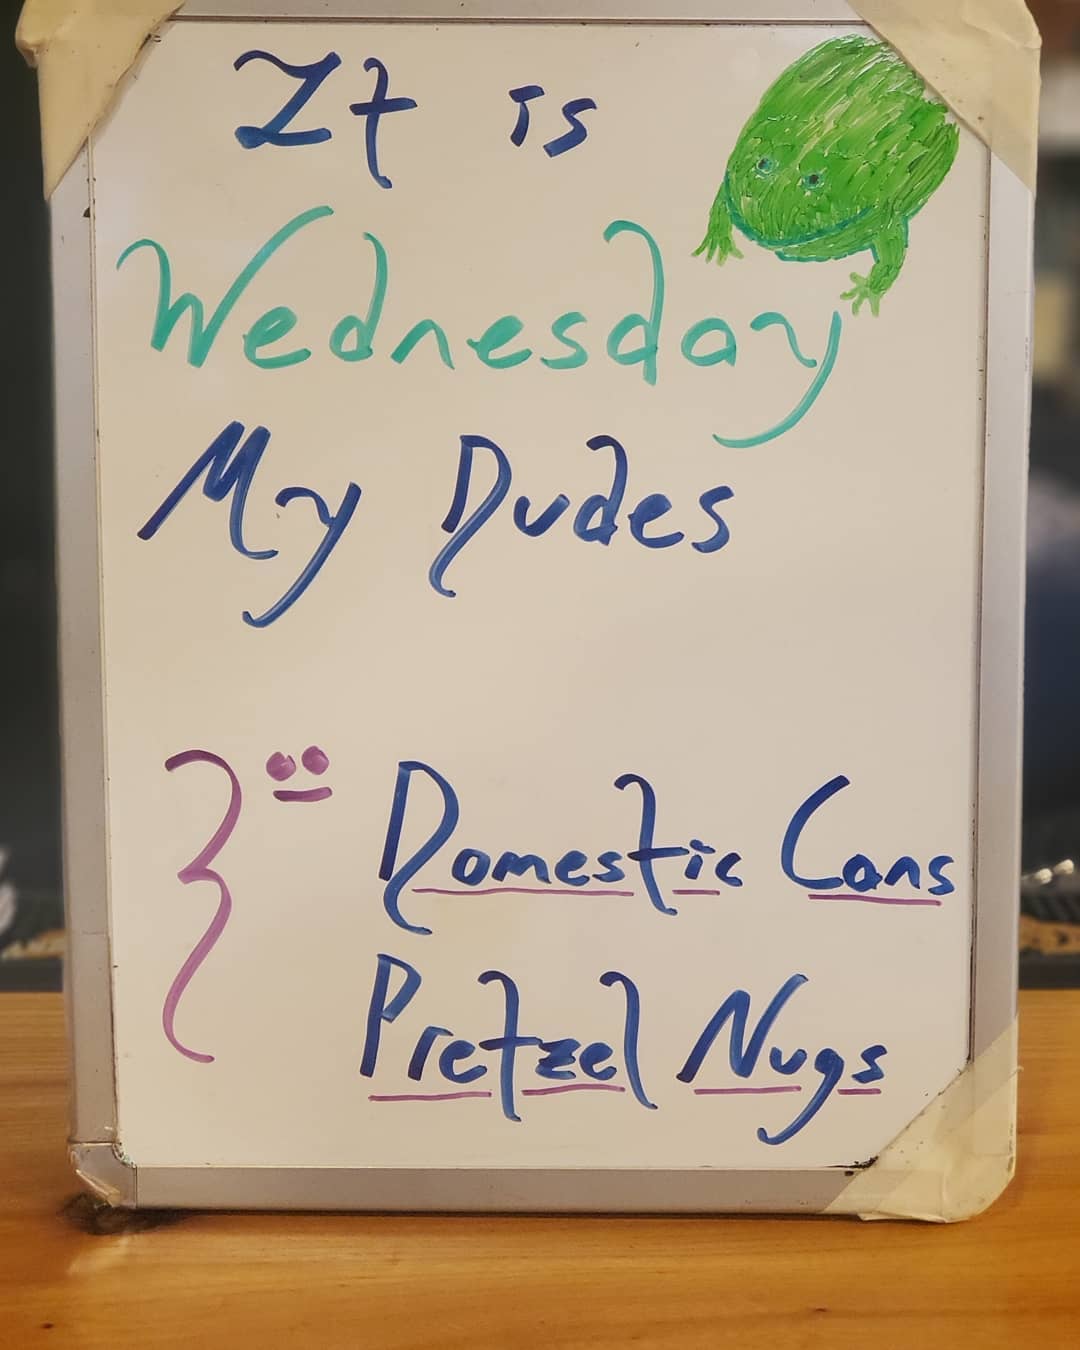 It is
Wednesday
My Dudes
Domestic Cans
Pretzel Nugs